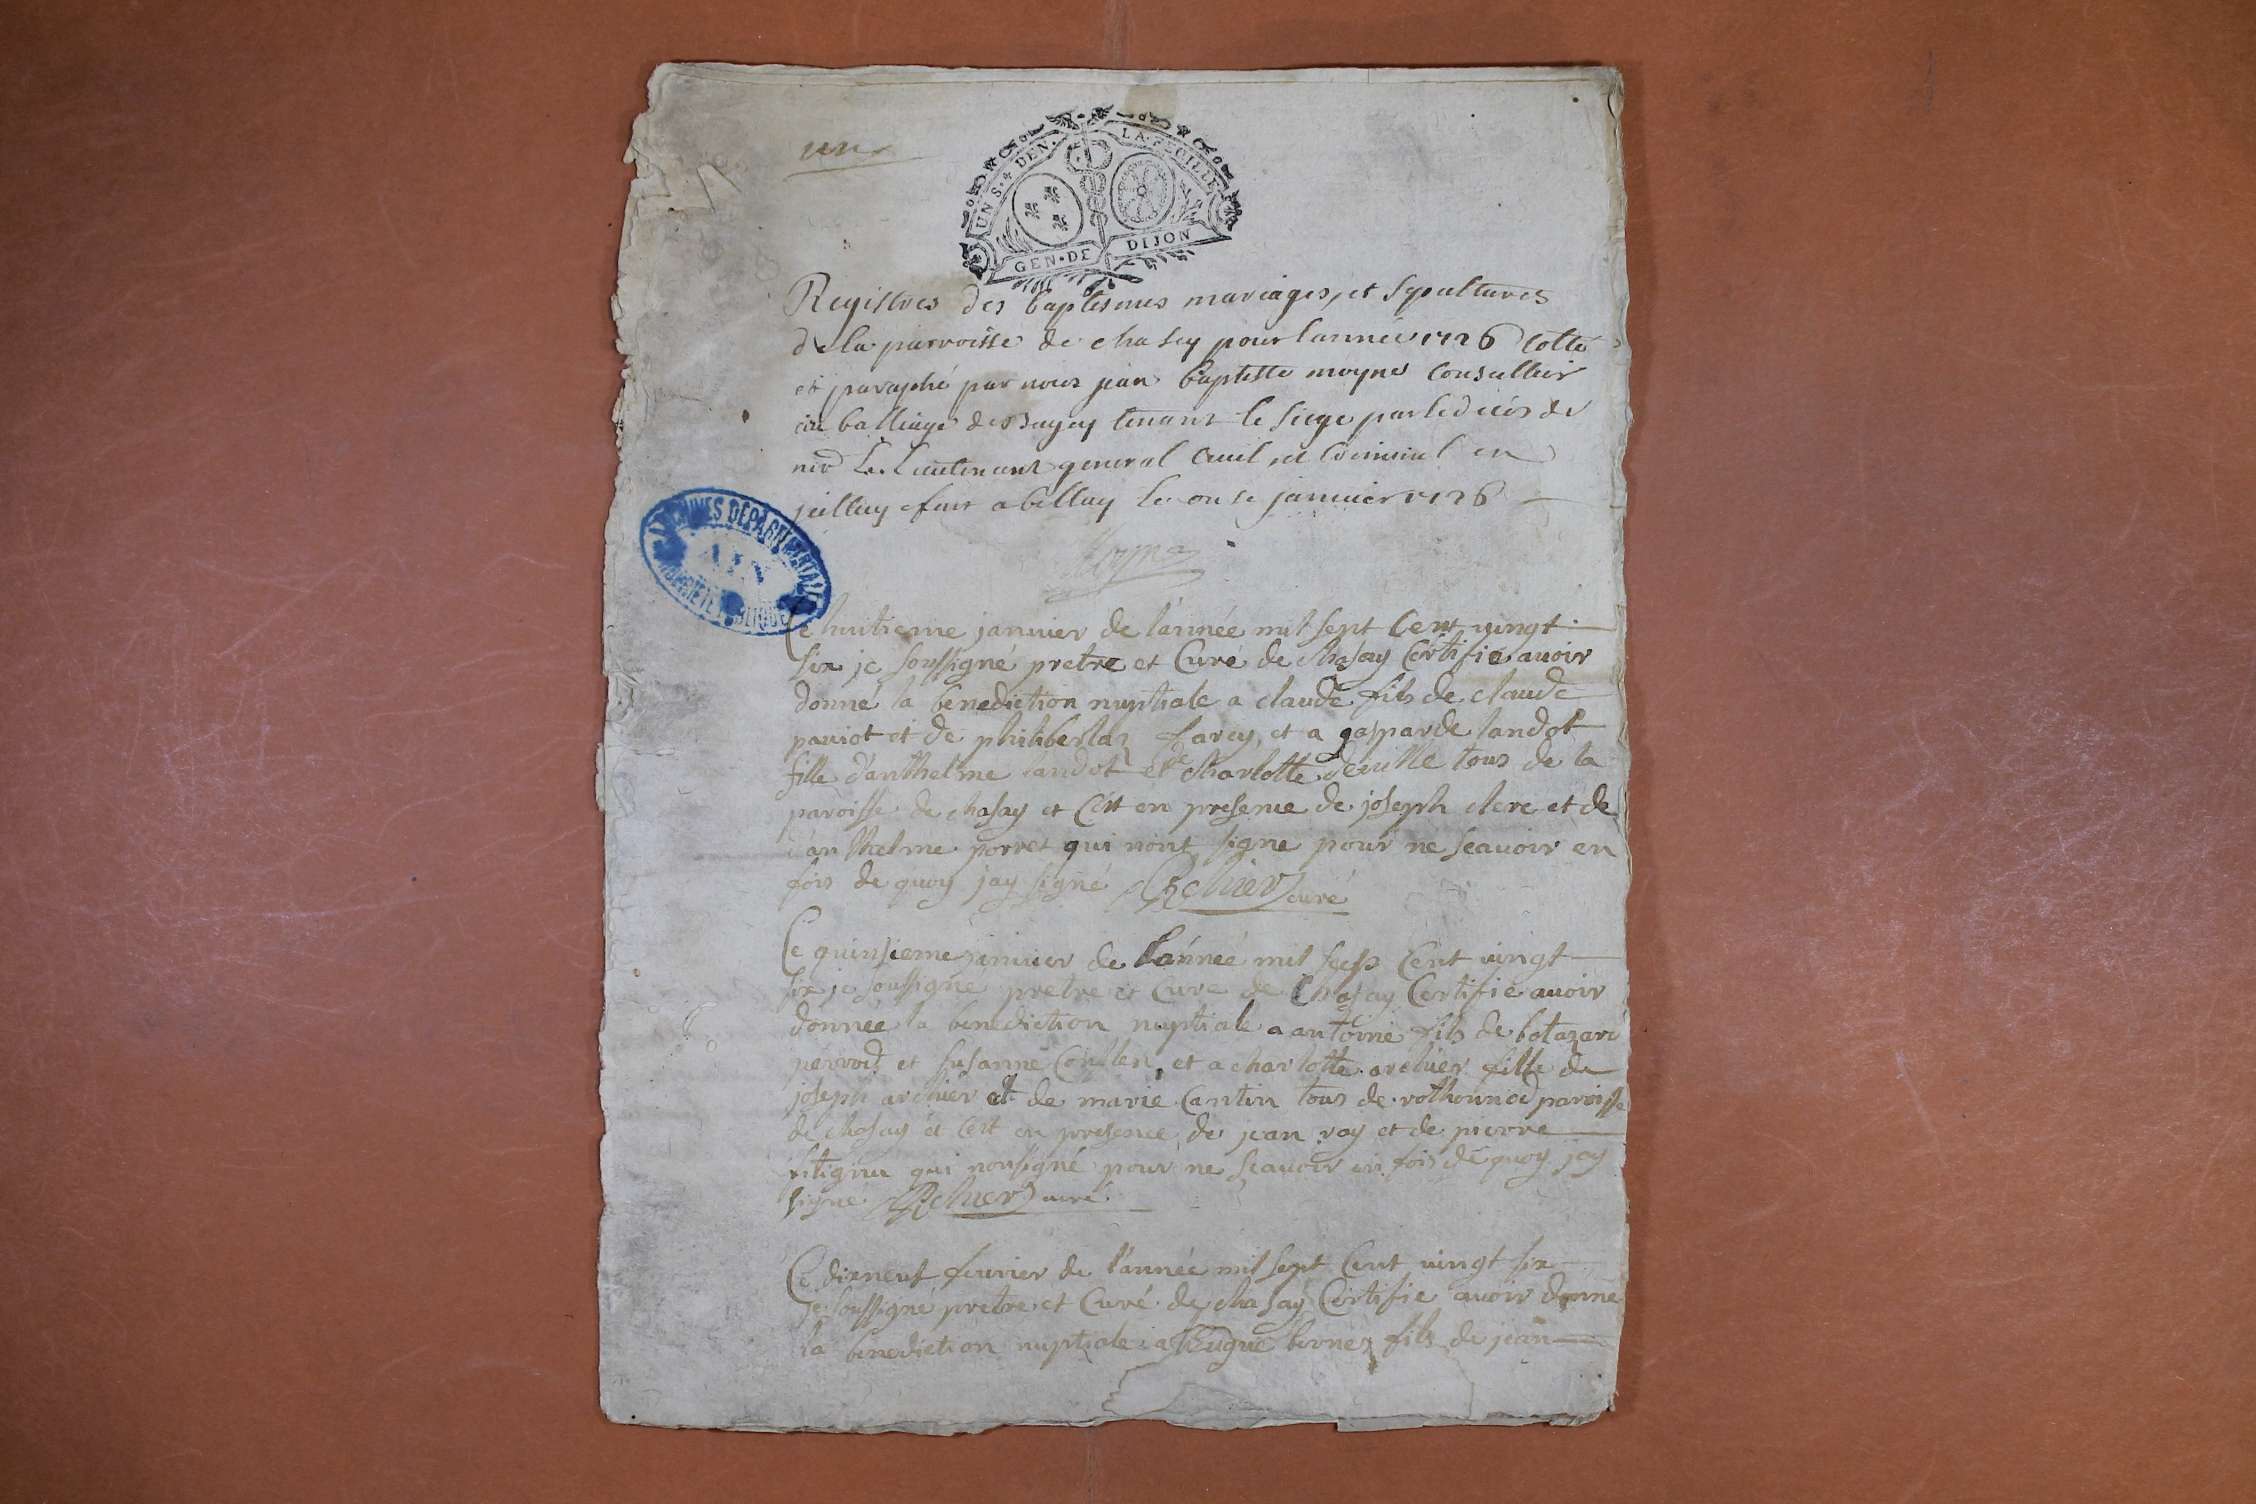 un
UN S. 4 DEN. LA FEUILLE
GEN. DE DIJON
Registres des baptesmes mariages, et sepultures
de la parroisse de chasey pour lannée 1726 cotté
et paraphé par nous jean baptiste moyne Conseiller
au balliage de Bugey tenant le siege par le decés de
Le Lieutenant general civil et criminel en
fait a belley le onse janvier 1726
Moyne
ARCHIVES DEPARTEMENTALES
AIN
PROPRIETE PUBLIQUE
Ce huitieme janvier de l'année mil sept Cent vingt
six je soussigné pretre et Curé de chasay Certifie avoir
donné la benediction nuptiale a claude fils de claude
paviot et de philiberta farcy, et a gasparde landot
fille d'anthelme landot et de charlotte deville tous de la
paroisse de chasay et C'est en presence de joseph clerc et de
d'anthelme porret qui n'ont signe pour ne scavoir en
fois de quoy jay signé Archier curé
Ce quinsieme janvier de l'année mil sept Cent vingt
six je soussigne pretre et Cure de Chasay Certifie avoir
donnée la benediction nuptiale a antoine fils de
et susanne et a charlotte archier fille de
joseph archier et de marie Cantin tous de rothonnod paroisse
de chasay et C'est en presence de jean roy et de pierre
qui nonsigné pour ne scavoir en fois de quoy jay
signe Archier curé
Ce dixneuf fevrier de l'année mil sept Cent vingt six
je soussigné pretre et Curé de chasay Certifie avoir donné
la benediction nuptiale a hugue bornez fils de jean